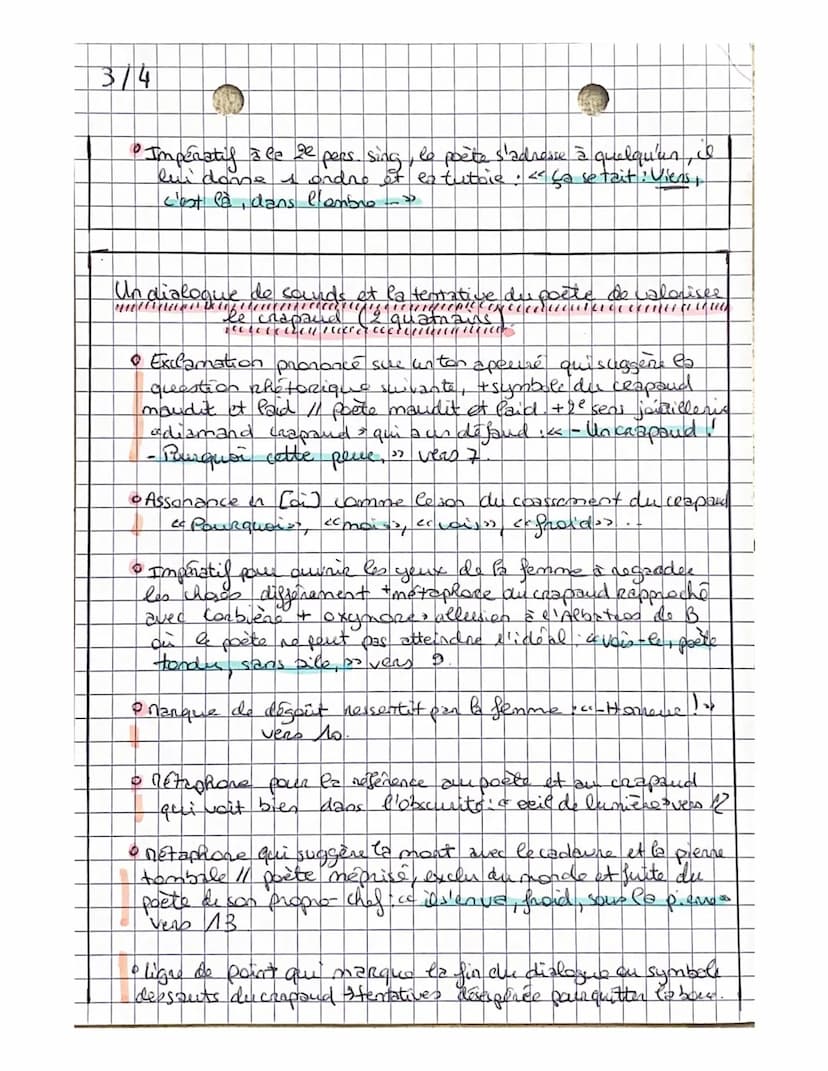 3/4
Impératif à la 2e pers. sing, le poète s'adresse à quelqu'un, il
lui donne 1 ordre et le tutoie : « Ça se tait : Viens,
c'est là, dans l'ombre... »
Un dialogue de sourds et la tentative du poète de valoriser
le crapaud (2 quatrains)
Exclamation prononcé sur un ton apeuré qui suggère la
question rhétorique suivante, + symbole du crapaud
maudit et laid // poète maudit et laid + 2e sens joaillerie
«diamand crapaud» qui a un défaud : « - Un crapaud !
- Pourquoi cette peur, » vers 7.
Assonance en [oi] comme le son du coassement du crapaud
« Pourquoi », « moi », « vois », « froid » ...
Impératif pour ouvrir les yeux de la femme à regarder
les choses différement + métaphore du crapaud rapproché
avec Corbière + oxymore, allusion à l'Albatros de B
où le poète ne peut pas atteindre l'idéal : « vois-le, poète
tondu, sans aile, » vers 9.
Marque de dégoût ressentit par la femme : « - Horreur ! »
vers 10.
Métaphore pour la référence au poète et au crapaud
qui voit bien dans l'obscurité : « oeil de lumière » vers 12
Métaphore qui suggère la mort avec le cadavre et la pierre
tombale // poète méprisé, exclu du monde et fuite du
poète de son propre chef : « il s'en va, froid, sous la pierre »
vers 13
ligne de point qui marque la fin du dialogue ou symbole
des sauts du crapaud → tentatives désespérée pour quitter la boue.